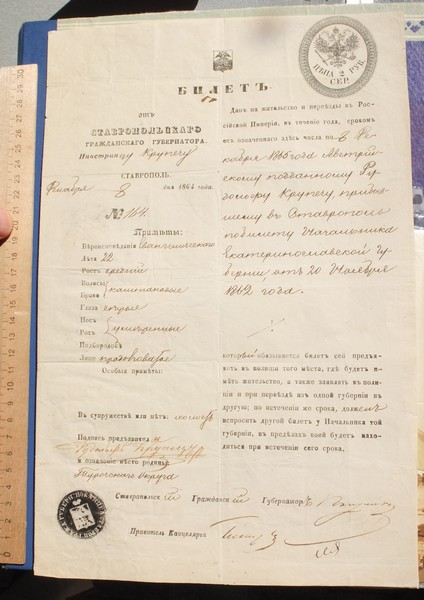 БИЛЕТЪ
ЦѢНА 2 РУБ. СЕР.
отъ
СТАВРОПОЛЬСКАГО
ГРАЖДАНСКАГО ГУБЕРНАТОРА.
Иностранцу
СТАВРОПОЛЬ.
Декабря 8 дня 1864 года.
№ 164.
Примѣты:
Вѣроисповѣданія Евангелическаго
Лѣта 22
Ростъ средній
Волосы
Брови каштановые
Глаза
Носъ
Ротъ умѣренные
Подбородокъ
Лице продолговатое
Особыя примѣты:
Въ супружествѣ или нѣтъ: холостъ
Подпись предъявителя
и названіе мѣста родины:
Округа
Данъ на жительство и переѣзды въ Рос-
сійской Имперіи, въ теченіе года, срокомъ
отъ означеннаго здѣсь числа по 8 Де-
кабря 1865 года Австрій-
скому подданному
прибыв-
шему въ Ставрополь
по билету Начальника
Екатеринославской Гу-
берніи, отъ 20 Ноября
1862 года.
который обязывается билетъ сей предъяв-
лять въ полиціи того мѣста, гдѣ будетъ и-
мѣть жительство, а также заявлять въ поли-
ціи и при переѣздѣ изъ одной губерніи въ
другую; по истеченіи же срока, долженъ
испросить другой билетъ у Начальника той
губерніи, въ предѣлахъ коей будетъ нахо-
диться при истеченіи сего срока.
Ставропольскій Гражданскій Губернаторъ
Правитель Канцеляріи